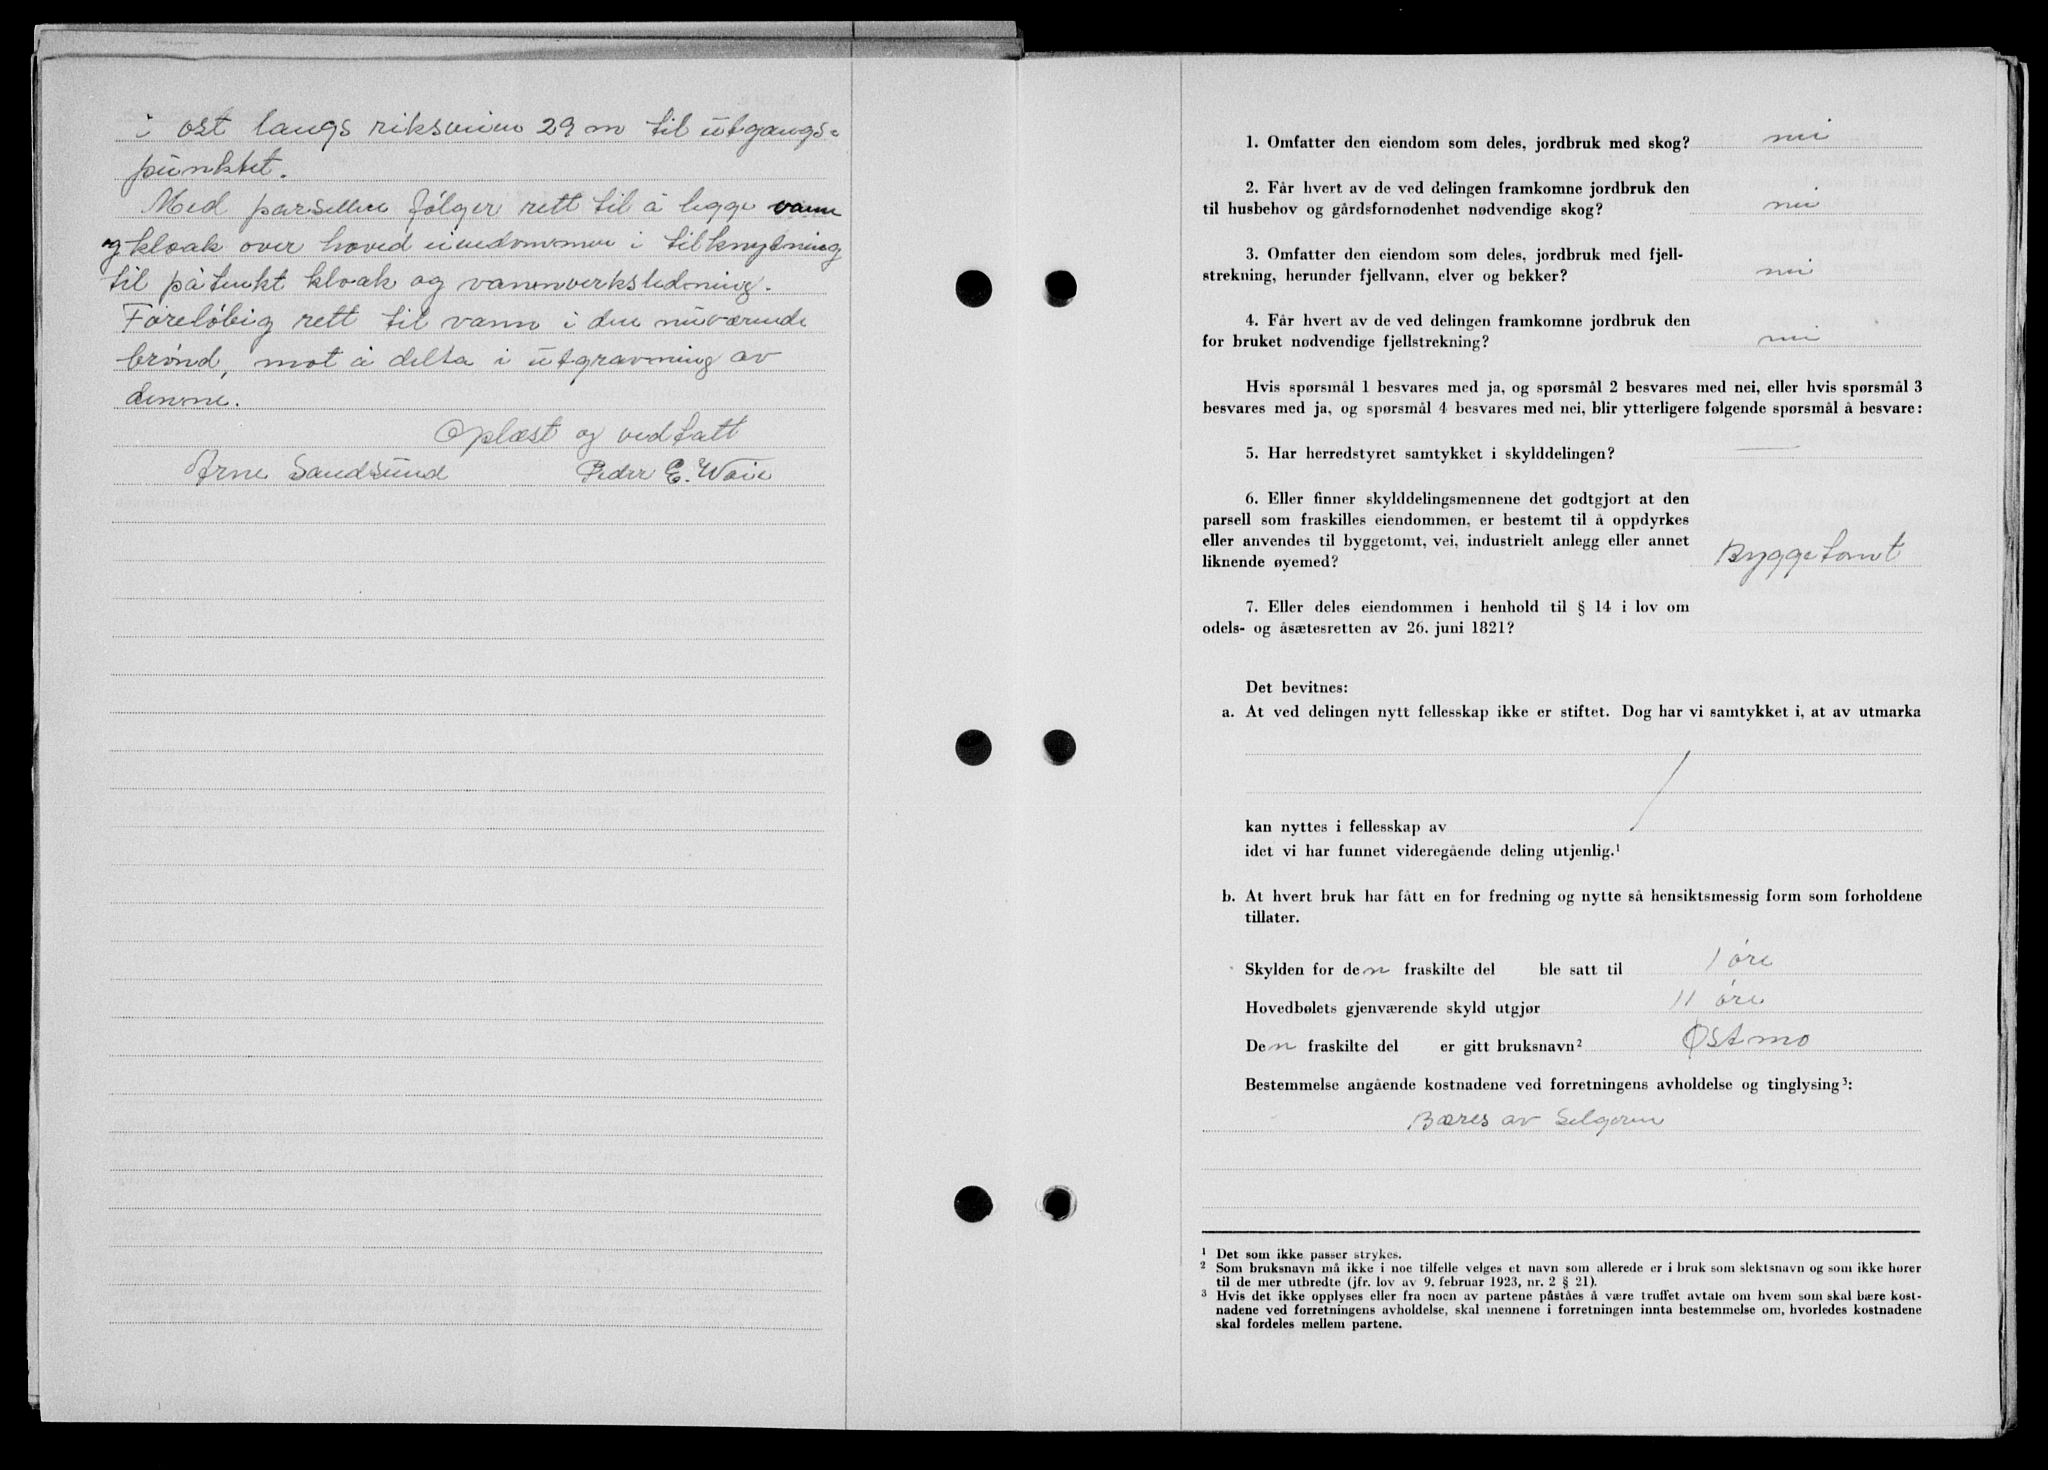 i øst langs riksveien 29 m til utgangs-
punktet.
Med parsellen følger rett til å legge vann
og kloak over hovedeiendommen i tilknytning
til påtenkt kloak og vannverksledning.
Foreløbig rett til vann i den nuværende
brønd, mot å delta i utgravning av
denne.
Oplæst og vedtatt
Arne Sandsund Peder E.
1. Omfatter den eiendom som deles, jordbruk med skog? nei
2. Får hvert av de ved delingen framkomne jordbruk den
til husbehov og gårdsfornødenhet nødvendige skog? nei
3. Omfatter den eiendom som deles, jordbruk med fjell-
strekning, herunder fjellvann, elver og bekker? nei
4. Får hvert av de ved delingen framkomne jordbruk den
for bruket nødvendige fjellstrekning? nei
Hvis spørsmål 1 besvares med ja, og spørsmål 2 besvares med nei, eller hvis spørsmål 3
besvares med ja, og spørsmål 4 besvares med nei, blir ytterligere følgende spørsmål å besvare:
5. Har herredstyret samtykket i skylddelingen? —
6. Eller finner skylddelingsmennene det godtgjort at den
parsell som fraskilles eiendommen, er bestemt til å oppdyrkes
eller anvendes til byggetomt, vei, industrielt anlegg eller annet
liknende øyemed? Byggetomt
7. Eller deles eiendommen i henhold til § 14 i lov om
odels- og åsætesretten av 26. juni 1821?
Det bevitnes:
a. At ved delingen nytt fellesskap ikke er stiftet. Dog har vi samtykket i, at av utmarka
kan nyttes i fellesskap av
idet vi har funnet videregående deling utjenlig.¹
b. At hvert bruk har fått en for fredning og nytte så hensiktsmessig form som forholdene
tillater.
Skylden for den fraskilte del ble satt til 1 øre
Hovedbølets gjenværende skyld utgjør 11 øre
Den fraskilte del er gitt bruksnavn² Østmo
Bestemmelse angående kostnadene ved forretningens avholdelse og tinglysing³:
Bæres av selgeren
¹ Det som ikke passer strykes.
² Som bruksnavn må ikke i noe tilfelle velges et navn som allerede er i bruk som slektsnavn og som ikke hører
til de mer utbredte (jfr. lov av 9. februar 1923, nr. 2 § 21).
³ Hvis det ikke opplyses eller fra noen av partene påståes å være truffet avtale om hvem som skal bære kost-
nadene ved forretningens avholdelse, skal mennene i forretningen innta bestemmelse om, hvorledes kostnadene
skal fordeles mellem partene.